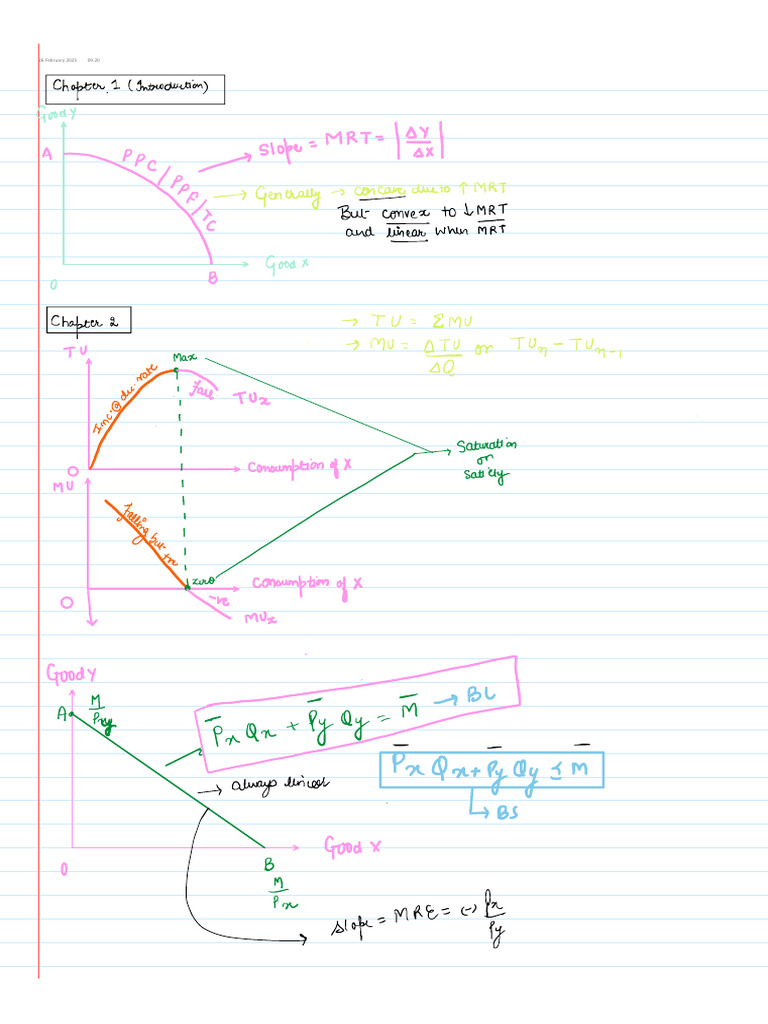 26 February 2021 09:20
Chapter. 1 (Introduction)
Good y
A
PPC/PPF/TC
Slope = MRT = |ΔY/ΔX|
→ Generally → concave due to ↑ MRT
But convex to ↓ MRT
and linear when MRT
Good x
B
0
Chapter 2
→ TU = ΣMU
→ MU = ΔTU/ΔQ or TUn - TUn-1
TU
Max
Inc. @ dec. rate
fall
TUx
Saturation
or
Satiety
O
Consumption of X
MU
falling but +ve
zero
Consumption of X
-ve
O
MUx
Good y
A
M/Pxy
PxQx + PyQy = M → BL
PxQx + PyQy ≤ M
→ BS
→ always linear
Good x
0
B
M/Px
Slope = MRE = (-) Px/Py